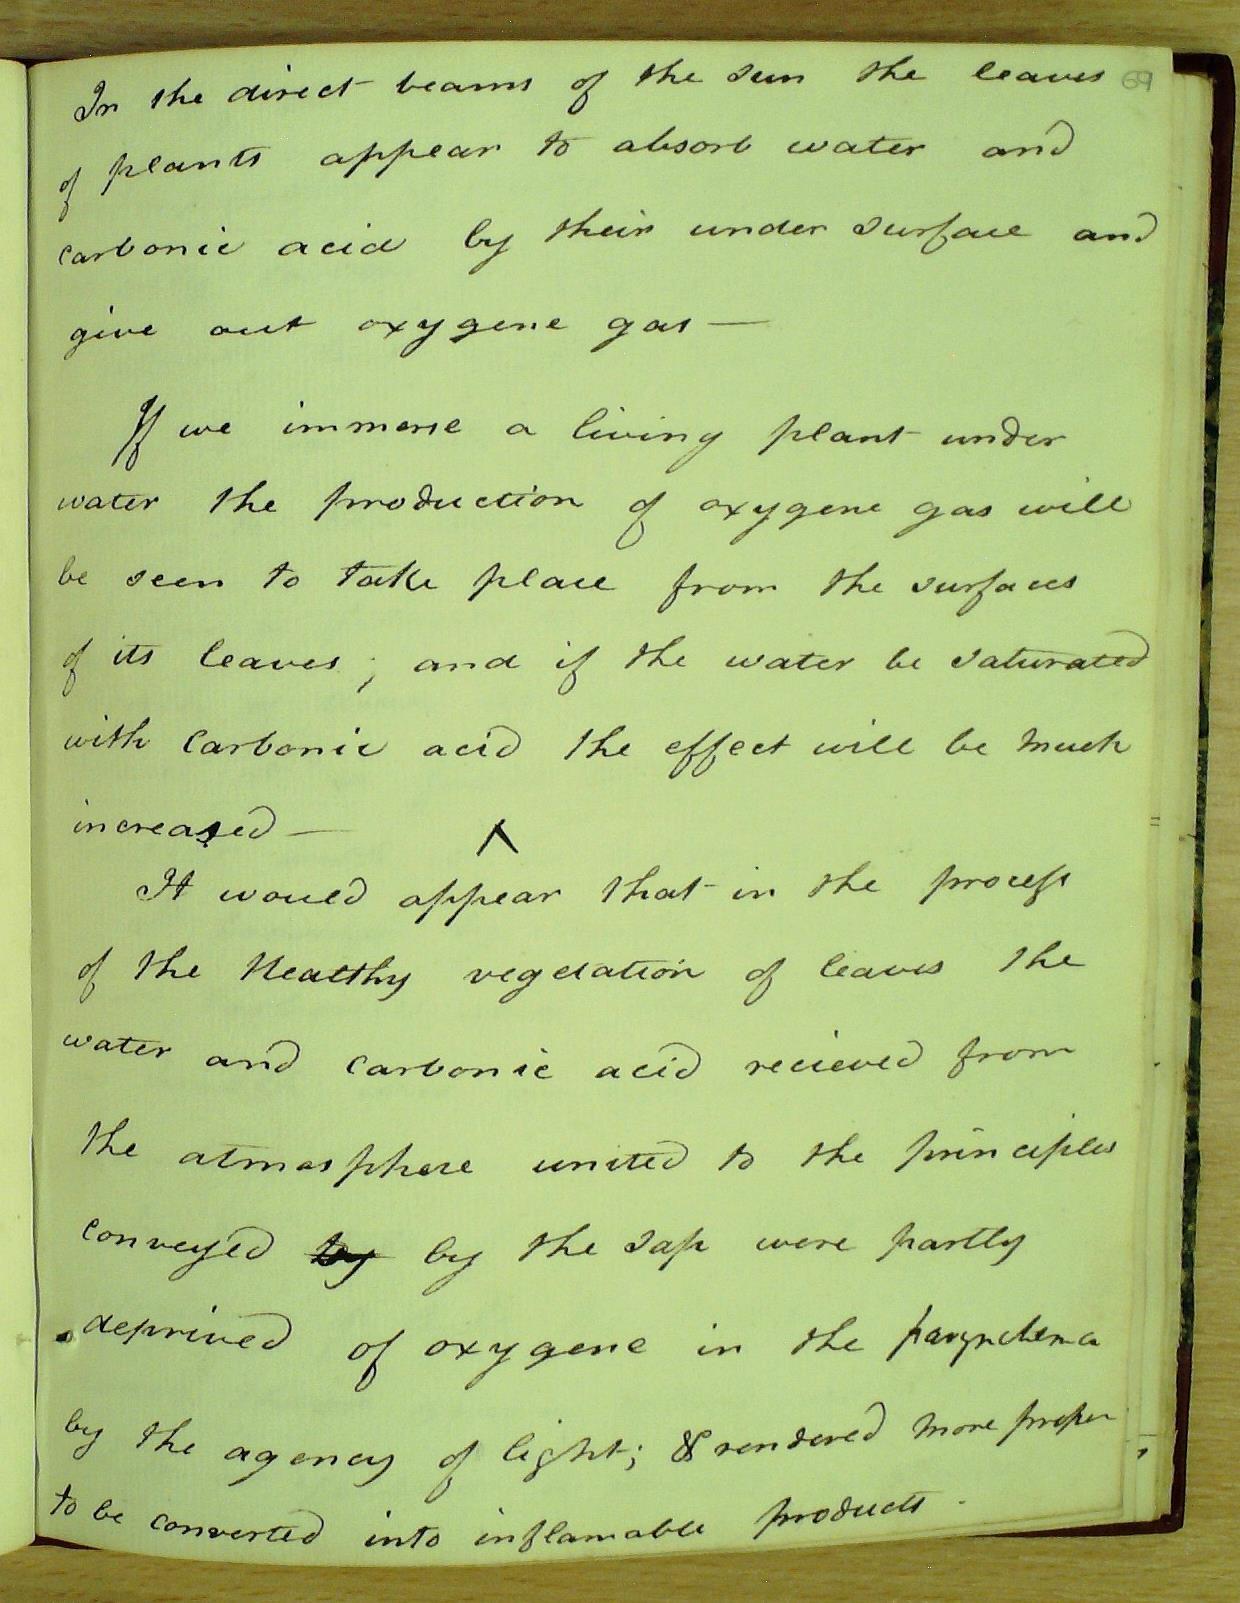 69
In the direct beams of the sun the leaves
of plants appear to absorb water and
carbonic acid by their under surface and
give out oxygene gas —
If we immerse a living plant under
water the production of oxygene gas will
be seen to take place from the surfaces
of its leaves; and if the water be saturated
with carbonic acid the effect will be much
increased — ^
It would appear that in the process
of the Healthy vegetation of leaves the
water and carbonic acid recieved from
the atmosphere united to the principles
conveyed by by the sap were partly
deprived of oxygene in the parynchema
by the agency of light; & rendered more proper
to be converted into inflamable products.